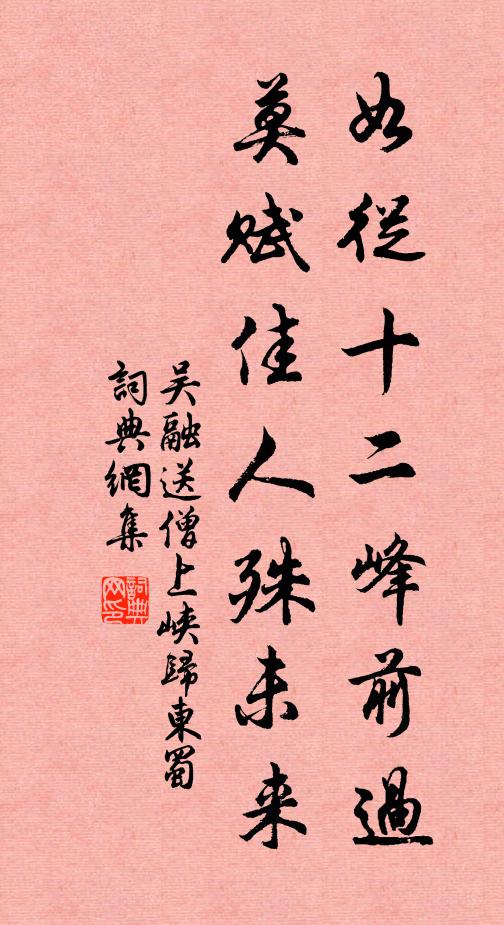 如從十二峰前過
莫賦佳人殊未来
吴融送僧上峡歸東蜀
詞典網集
詞典网印